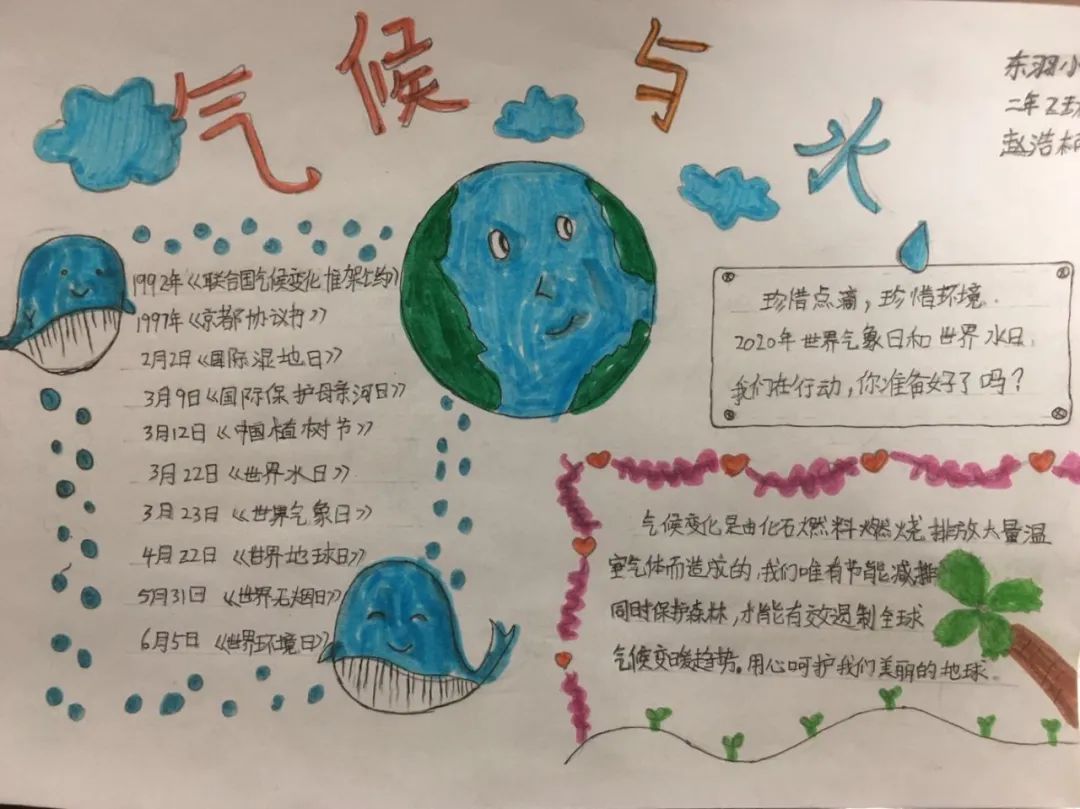 气候与水
东羽小
二年2班
赵浩
1992年《联合国气候变化框架公约》
1997年《京都协议书》
2月2日《国际湿地日》
3月9日《国际保护母亲河日》
3月12日《中国植树节》
3月22日《世界水日》
3月23日《世界气象日》
4月22日《世界地球日》
5月31日《世界无烟日》
6月5日《世界环境日》
珍惜点滴，珍惜环境.
2020年世界气象日和世界水日.
我们在行动，你准备好了吗？
气候变化是由化石燃料燃烧排放大量温
室气体而造成的，我们唯有节能减排
同时保护森林，才能有效遏制全球
气候变暖趋势。用心呵护我们美丽的地球.